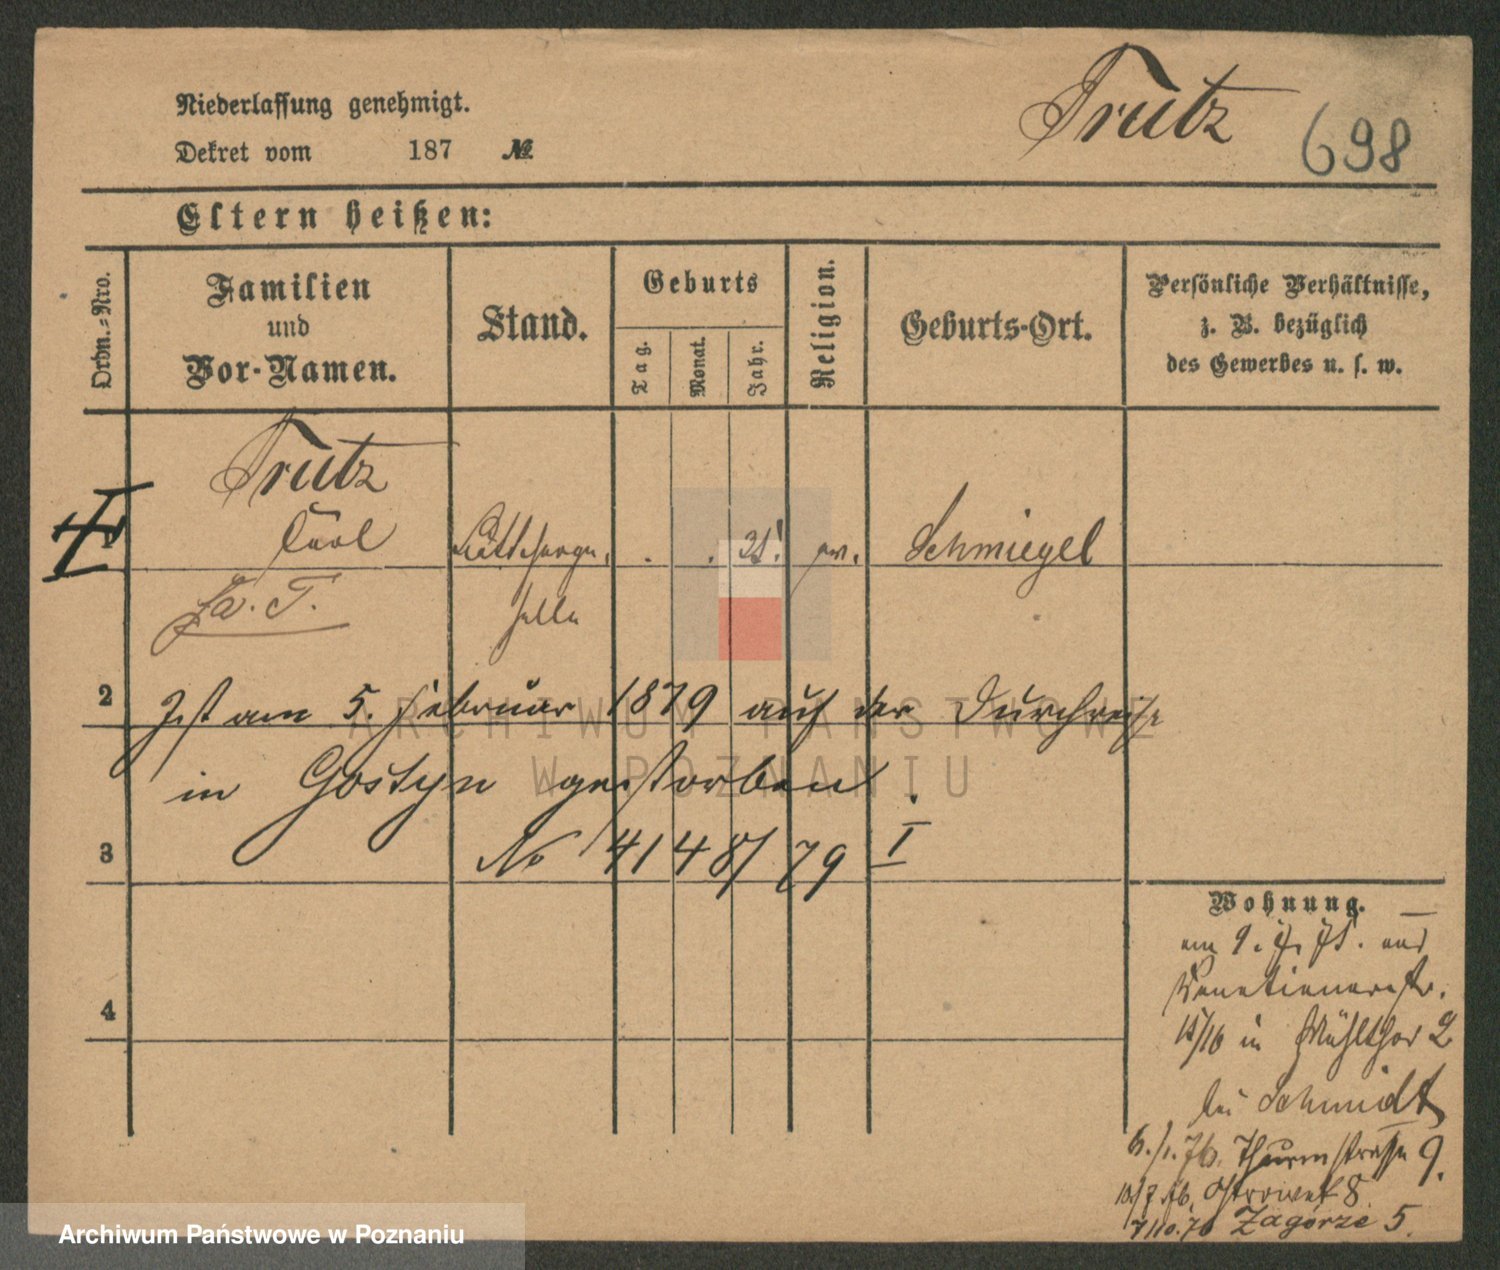 Niederlassung genehmigt.
Dekret vom 187 №
Trutz
698
Eltern heißen:
Ordn.-Nro.
Familien
und
Vor-Namen.
Stand.
Geburts
Tag.
Monat.
Jahr.
Religion.
Geburts-Ort.
Persönliche Verhältnisse,
z. B. bezüglich
des Gewerbes u. s. w.
Trutz
Carl
Schmiegel
2
Ist am 5. Februar 1879 auf der Durchreise
in Gostyn gestorben.
3
No 4148/79 I
4
Wohnung.
Venetianerstr.
15/16 in Mühlthor 2
bei Schmidt
Thurmstraße 9.
Ostrowek 8
7/10.76 Zagorze 5.
ARCHIWUM PAŃSTWOWE
W POZNANIU
Archiwum Państwowe w Poznaniu